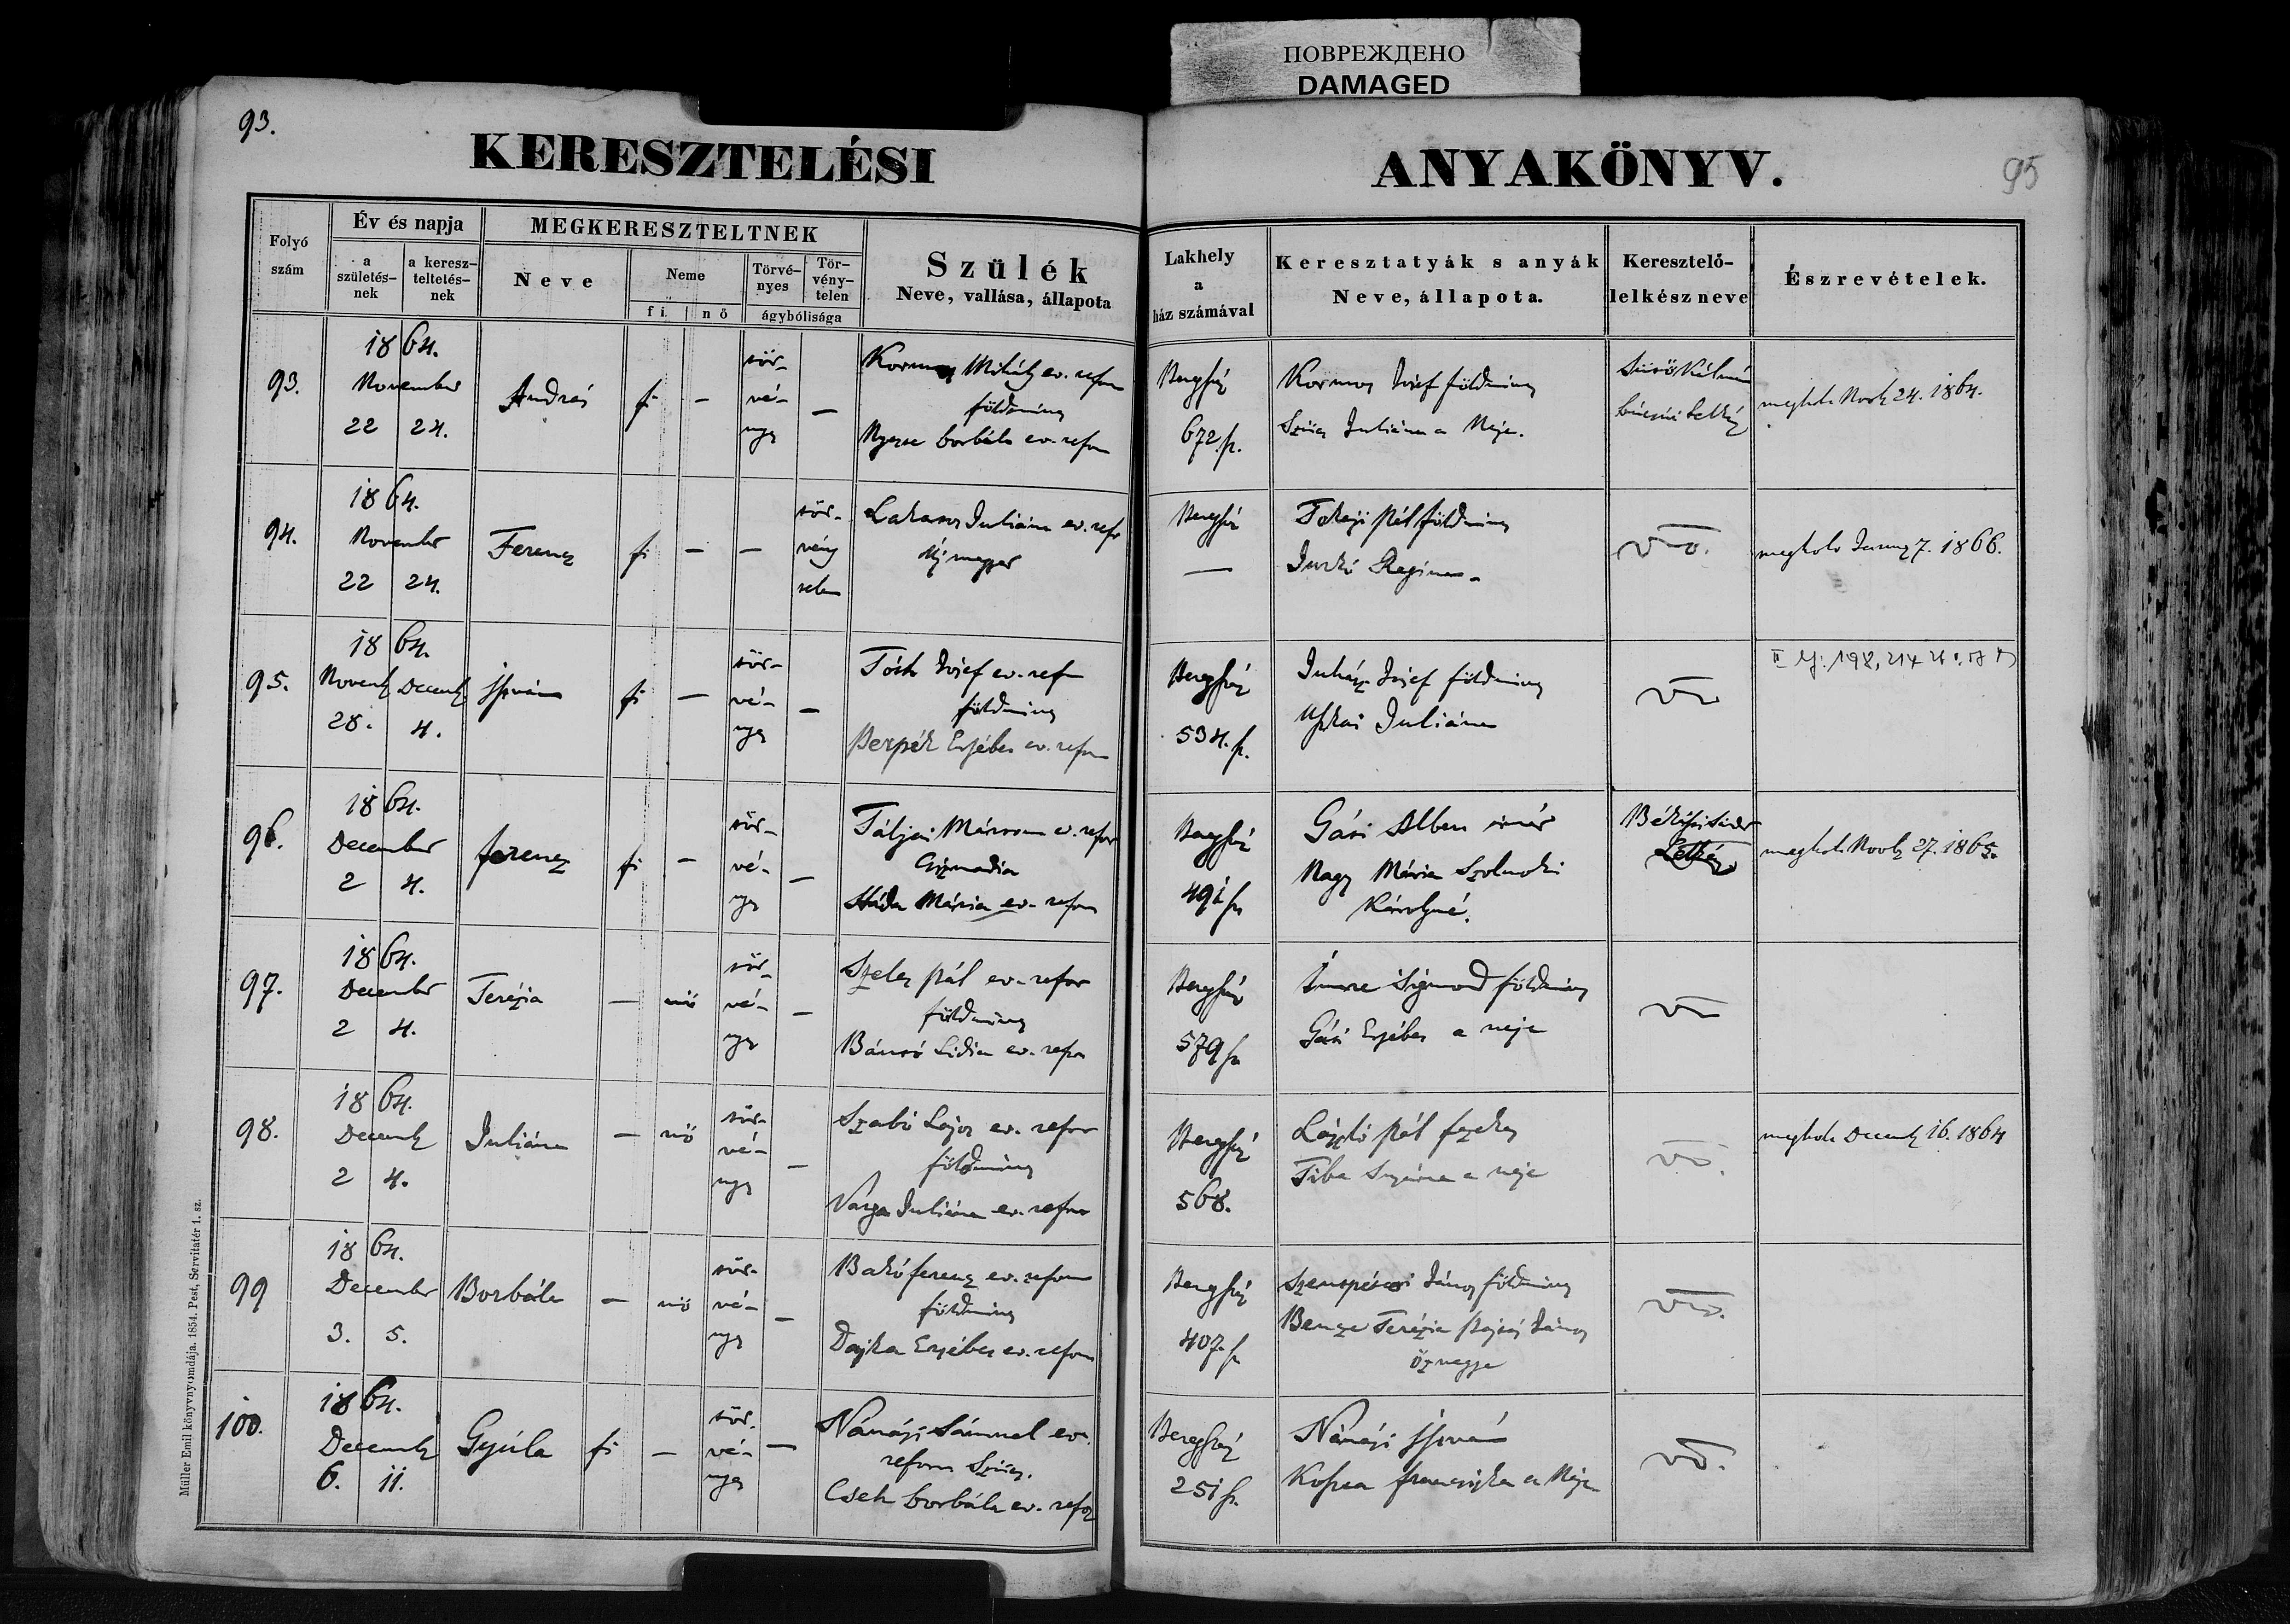 ПОВРЕЖДЕНО
DAMAGED
93.
95
KERESZTELÉSI ANYAKÖNYV.
Folyó szám
Év és napja
a születés-nek
a keresz-teltetés-nek
MEGKERESZTELTNEK
Neve
Neme
fi.
nő
Törvé-nyes
Tör-vény-telen
ágybólisága
Szülék
Neve, vallása, állapota
Lakhely
a
ház számával
Keresztatyák s anyák
Neve, állapota.
Keresztelő-
lelkész neve
Észrevételek.
93.
1864.
November
22 24.
András
fi
–
tör-
vé-
nyes
–
Kormos Mihály ev. refor
földmives
borbála ev. refor
Beregszász
672.
Kormos Jósef földmives
Szücs Juliánna Neje.
Kálmán
megholt Novb 24. 1864.
94.
1864.
November
22 24.
Ferencz
fi
–
–
tör-
vény
telen
Lakatos Juliánna ev. refor
Új magyar
Beregszász
–
Tokaji Pál földmives
Regina
megholt Januar 7. 1866.
95.
1864.
Novemb Decemb
28. 4.
István
fi
–
tör-
vé-
nyes
–
Tóth Jósef ev. refor
földmives
Erzsébet ev. refor
Beregszász
534.
Juhász Jósef földmives
Juliánna
96.
1864.
December
2 4.
ferencz
fi
–
tör-
vé-
nyes
–
Táljai Márton ev. refor
Csizmadia
Mária ev. refor
Beregszász
491
Gási Albert
Nagy Mária Szolnoki
Károlyné.
Lelkész
megholt Novb 27. 1865.
97.
1864.
December
2 4.
Terézia
–
nő
tör-
vé-
nyes
–
Szeles Pál ev. refor
földmives
Lidia ev. refor
Beregszász
579
Imre Sigmond földmives
Gási Erzsébet a neje
98.
1864.
Decemb
2 4.
Juliánna
–
nő
tör-
vé-
nyes
–
Szabó Lajos ev. refor
földmives
Varga Juliánna ev. refor
Beregszász
568.
László Pál fazekas
Tiba Susánna a neje
megholt Decemb 16. 1864
99
1864.
December
3. 5.
Borbála
–
nő
tör-
vé-
nyes
–
Bakó ferencz ev. refor
földmives
Dajka Erzsébet ev. refor
Beregszász
407.
Szentpéteri János földmives
Bencze Terézia János
özvegye
100.
1864.
Decemb
6. 11.
Gyúla
fi
–
tör-
vé-
nyes
–
Nánási Sámuel ev.
refor Szücs.
Cseh borbála ev. refor
Beregszász
251
Nánási István
francziska a Neje
Müller Emil könyvnyomdája. 1854. Pest, Servitatér 1. sz.